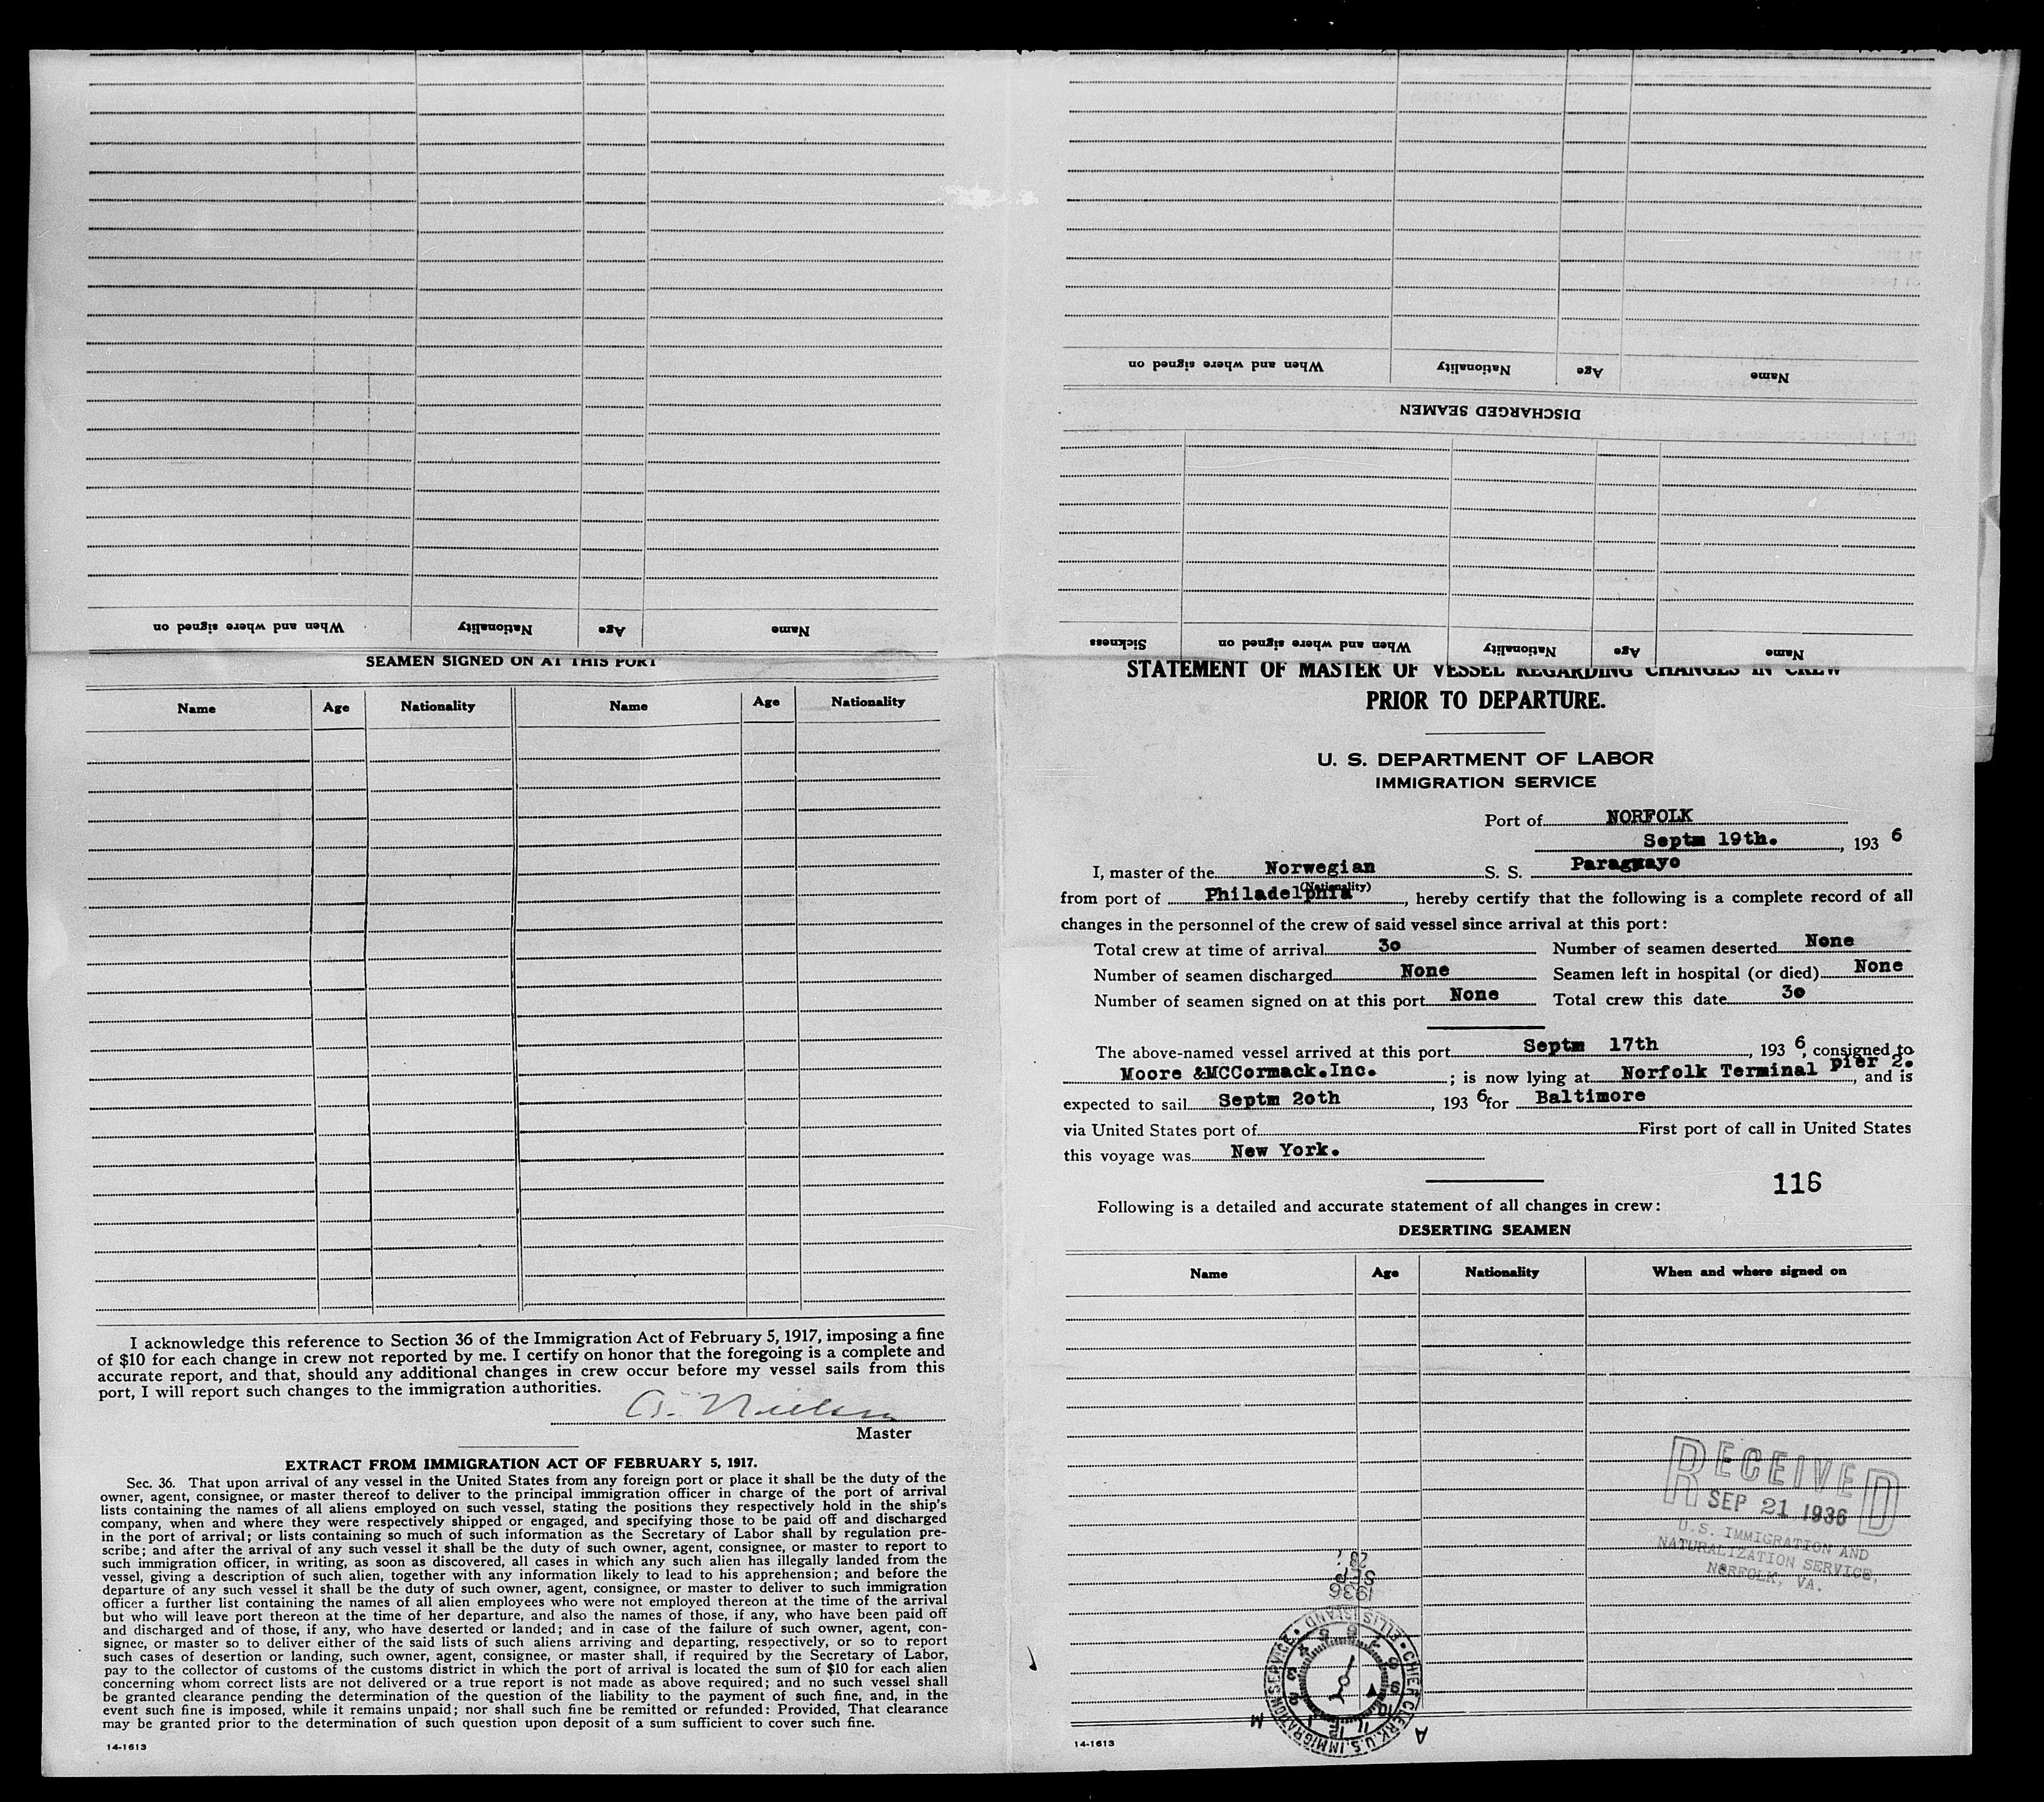 When and where signed on Nationality Age Name
SEAMEN SIGNED ON AT THIS PORT
Name Age Nationality Name Age Nationality
I acknowledge this reference to Section 36 of the Immigration Act of February 5, 1917, imposing a fine
of $10 for each change in crew not reported by me. I certify on honor that the foregoing is a complete and
accurate report, and that, should any additional changes in crew occur before my vessel sails from this
port, I will report such changes to the immigration authorities.
Nielsen
Master
EXTRACT FROM IMMIGRATION ACT OF FEBRUARY 5, 1917.
Sec. 36. That upon arrival of any vessel in the United States from any foreign port or place it shall be the duty of the
owner, agent, consignee, or master thereof to deliver to the principal immigration officer in charge of the port of arrival
lists containing the names of all aliens employed on such vessel, stating the positions they respectively hold in the ship's
company, when and where they were respectively shipped or engaged, and specifying those to be paid off and discharged
in the port of arrival; or lists containing so much of such information as the Secretary of Labor shall by regulation pre-
scribe; and after the arrival of any such vessel it shall be the duty of such owner, agent, consignee, or master to report to
such immigration officer, in writing, as soon as discovered, all cases in which any such alien has illegally landed from the
vessel, giving a description of such alien, together with any information likely to lead to his apprehension; and before the
departure of any such vessel it shall be the duty of such owner, agent, consignee, or master to deliver to such immigration
officer a further list containing the names of all alien employees who were not employed thereon at the time of the arrival
but who will leave port thereon at the time of her departure, and also the names of those, if any, who have been paid off
and discharged and of those, if any, who have deserted or landed; and in case of the failure of such owner, agent, con-
signee, or master so to deliver either of the said lists of such aliens arriving and departing, respectively, or so to report
such cases of desertion or landing, such owner, agent, consignee, or master shall, if required by the Secretary of Labor,
pay to the collector of customs of the customs district in which the port of arrival is located the sum of $10 for each alien
concerning whom correct lists are not delivered or a true report is not made as above required; and no such vessel shall
be granted clearance pending the determination of the question of the liability to the payment of such fine, and, in the
event such fine is imposed, while it remains unpaid; nor shall such fine be remitted or refunded: Provided, That clearance
may be granted prior to the determination of such question upon deposit of a sum sufficient to cover such fine.
14-1613
When and where signed on Nationality Age Name
DISCHARGED SEAMEN
Sickness When and where signed on Nationality Age Name
STATEMENT OF MASTER OF VESSEL REGARDING CHANGES IN CREW
PRIOR TO DEPARTURE.
U. S. DEPARTMENT OF LABOR
IMMIGRATION SERVICE
Port of NORFOLK
Septm 19th. , 193 6
I, master of the Norwegian S. S. Paraguayo
(Nationality)
from port of Philadelphia , hereby certify that the following is a complete record of all
changes in the personnel of the crew of said vessel since arrival at this port:
Total crew at time of arrival 3o Number of seamen deserted None
Number of seamen discharged None Seamen left in hospital (or died) None
Number of seamen signed on at this port None Total crew this date 3o
The above-named vessel arrived at this port Septm 17th , 193 6, consigned to
Moore &MCCormack.Inc. ; is now lying at Norfolk Terminal pier 2. , and is
expected to sail Septm 2oth , 193 6 for Baltimore
via United States port of First port of call in United States
this voyage was New York.
116
Following is a detailed and accurate statement of all changes in crew:
DESERTING SEAMEN
Name Age Nationality When and where signed on
RECEIVED
SEP 21 1936
U.S. IMMIGRATION AND
NATURALIZATION SERVICE,
NORFOLK, VA.
SEP
1936
CHIEF CLERK, U.S. IMMIGRATION SERVICE • ELLIS ISLAND •
1 2 3 4 5 6 7 8 9 10 11 12
A M
14-1613